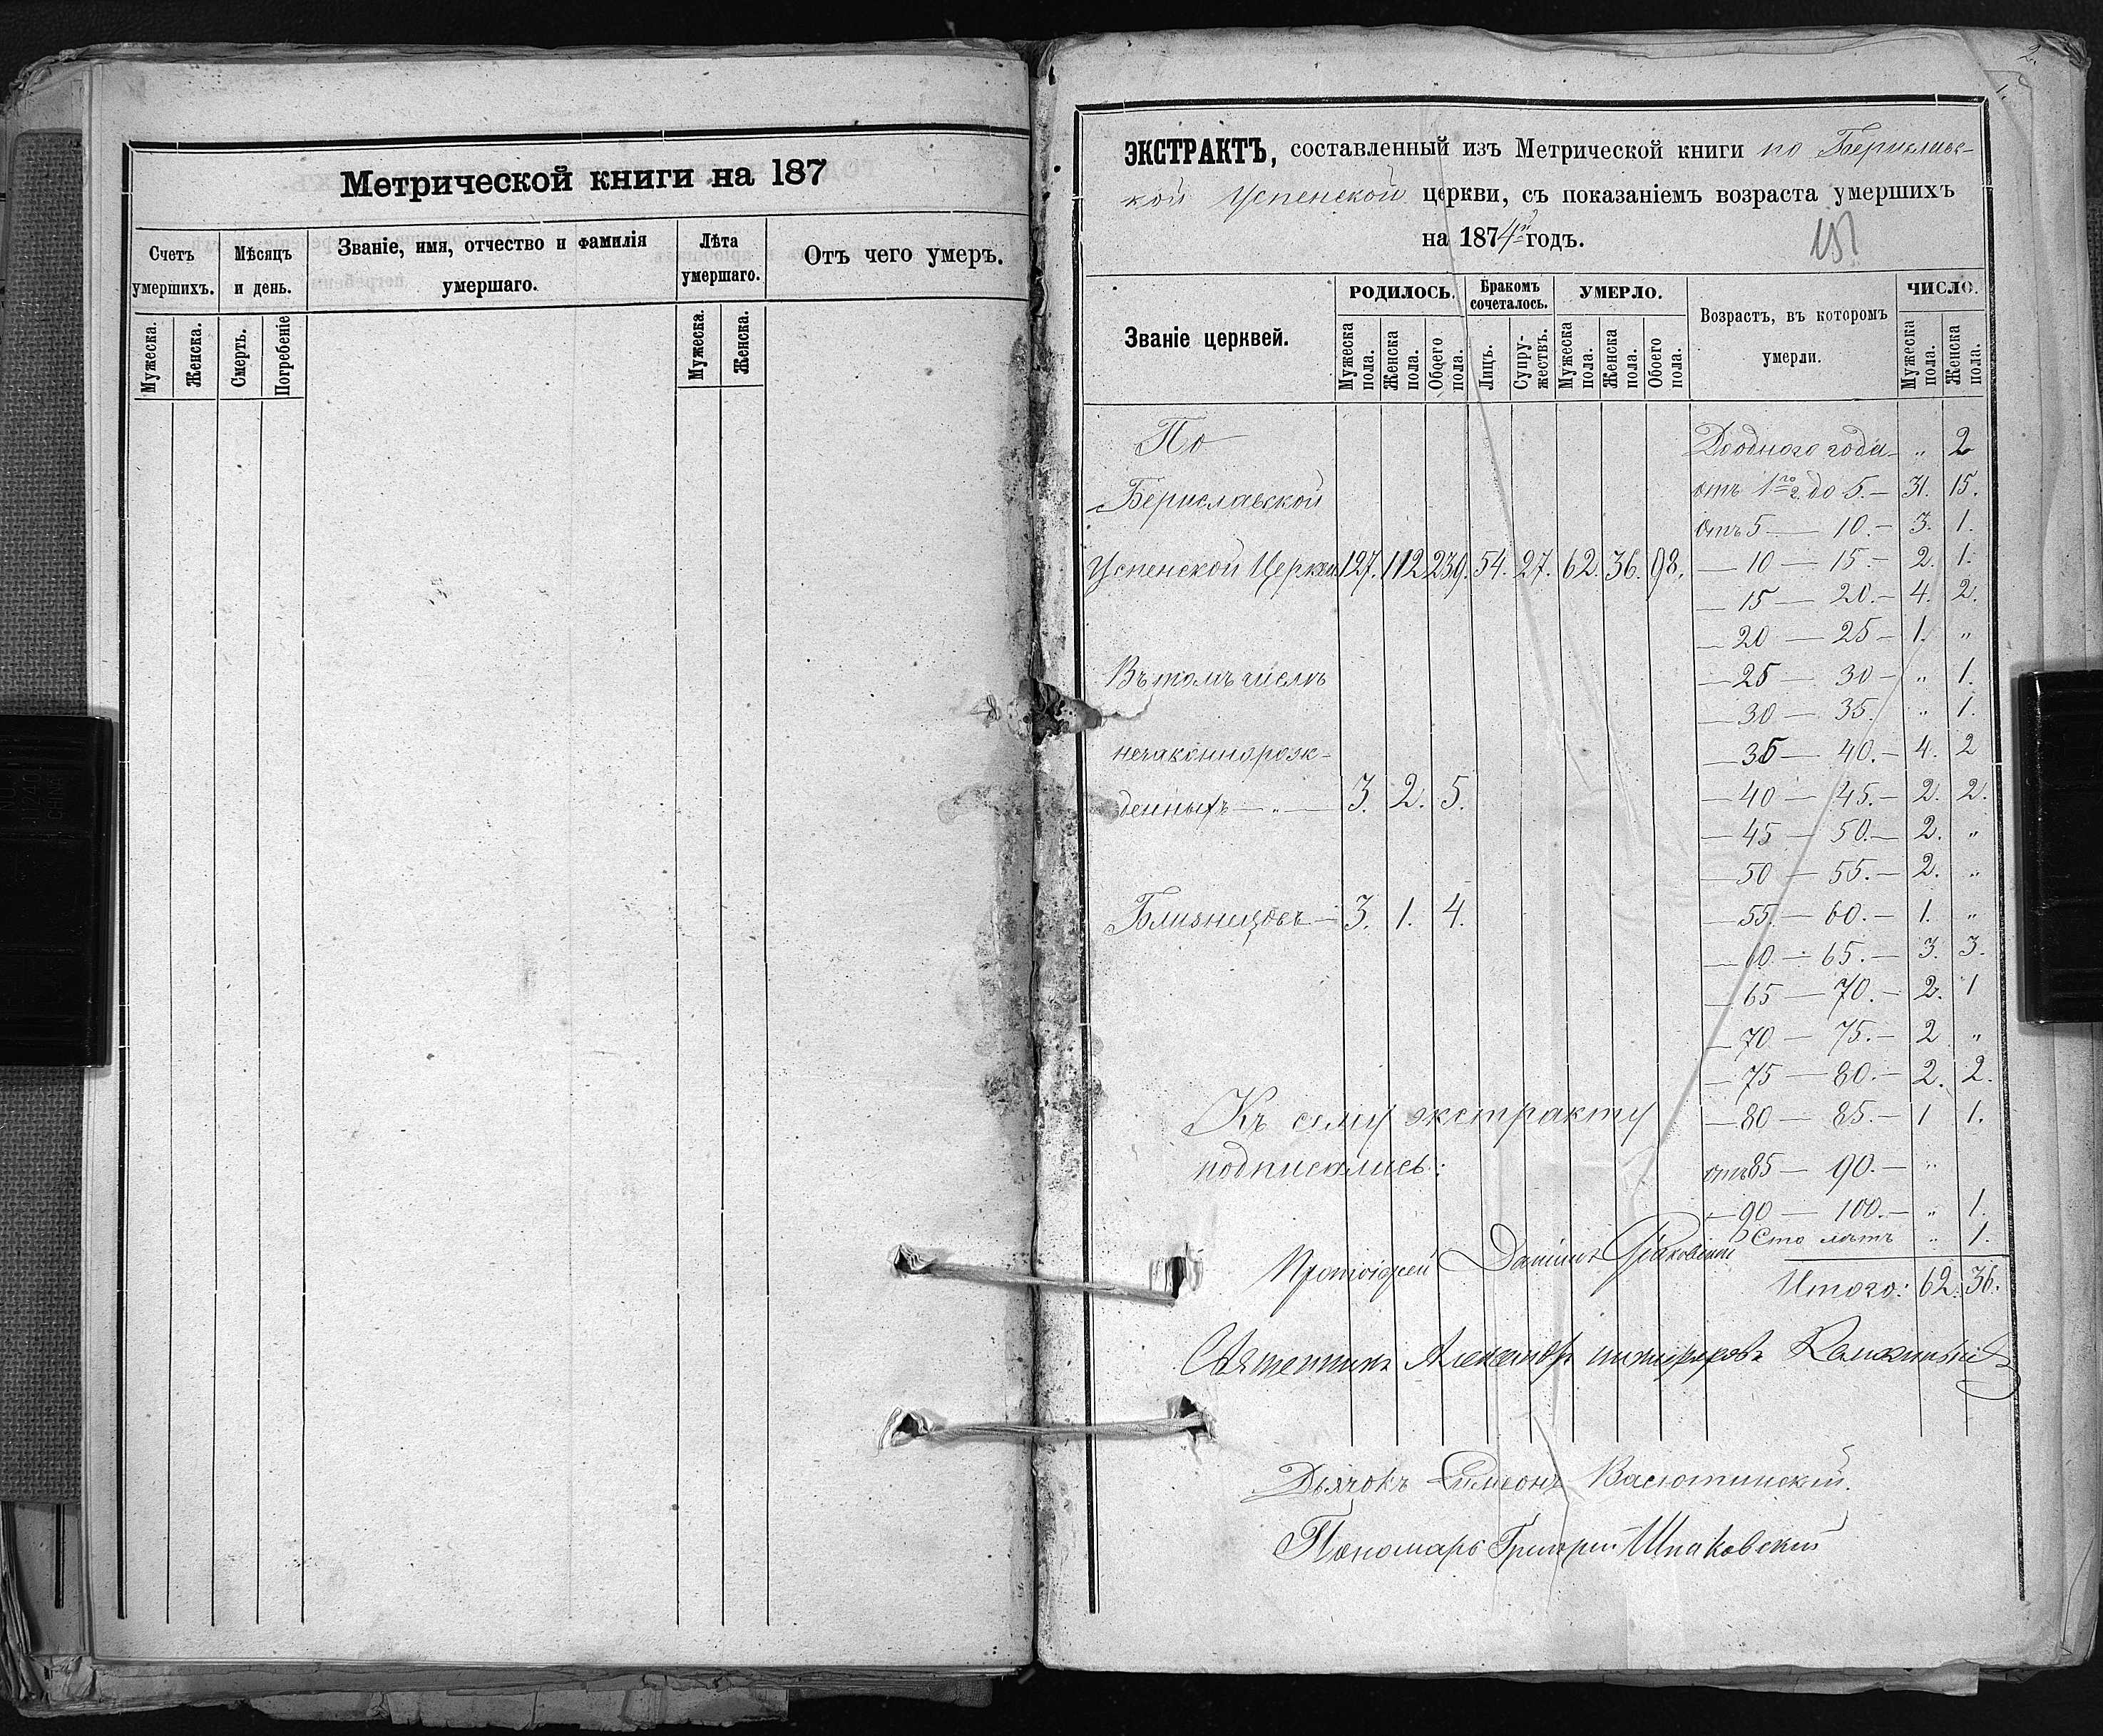 Метрической книги на 187
Счетъ умершихъ.
Мѣсяцъ и день.
Званіе, имя, отчество и фамилія умершаго.
Лѣта умершаго.
Отъ чего умеръ.
Мужеска.
Женска.
Смерть.
Погребеніе
Мужеска.
Женска.
2.
1.
ЭКСТРАКТЪ, составленный изъ Метрической книги по Берислав-
кой Успенской церкви, съ показаніемъ возраста умершихъ
на 1874й годъ.
Званіе церквей.
РОДИЛОСЬ.
Бракомъ сочеталось.
УМЕРЛО.
Возрастъ, въ которомъ умерли.
ЧИСЛО.
Мужеска пола.
Женска пола.
Обоего пола.
Лицъ.
Супружествъ.
Мужеска пола.
Женска пола.
Обоего пола.
Мужеска пола.
Женска пола.
По
Бериславской
Успенской Церкви 127. 112 239. 54. 27. 62. 36. 98.
Въ томъ числѣ
незаконнорож-
денныхъ — „ — 3. 2. 5.
Близнецовъ — 3. 1. 4.
До одного года — „ 2
отъ 1го г. до 5. — 31. 15.
отъ 5 — 10. — 3. 1.
— 10 — 15. — 2. 1.
— 15 — 20. — 4. 2.
— 20 — 25 — 1. „
— 25 — 30 — „ 1.
— 30 — 35. „ 1.
— 35 — 40. — 4. 2
— 40 — 45. — 2. 2.
— 45 — 50. — 2. „
— 50 — 55. — 2. „
— 55. — 60. — 1. „
— 60. — 65. — 3. 3.
— 65 — 70. — 2. 1
— 70 — 75. — 2 „
— 75 — 80. — 2. 2.
— 80 — 85. — 1 1.
отъ 85 — 90. — „
— 90 — 100. — „ 1.
Сто лѣтъ „ 1.
Итого: 62. 36.
Къ сему экстракту
подписались:
Протоіерей Даніилъ
Священникъ Александръ
Дьячокъ Симеонъ Васютинскій.
Пономарь Григорій Шпаковскій